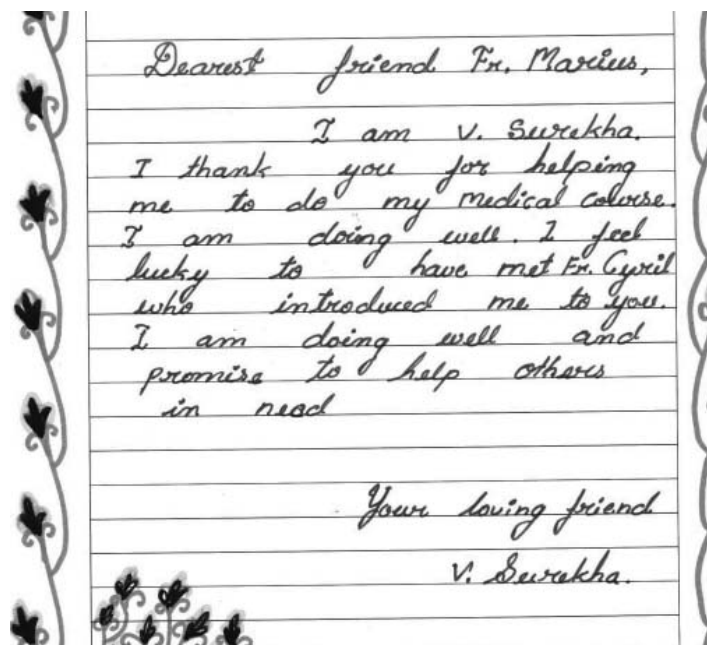 Dearest friend Fr. Marius,
I am V. Surekha.
I thank you for helping
me to do my medical course.
I am doing well. I feel
lucky to have met Fr. Cyril
who introduced me to you.
I am doing well and
promise to help others
in need
Your loving friend
V. Surekha.